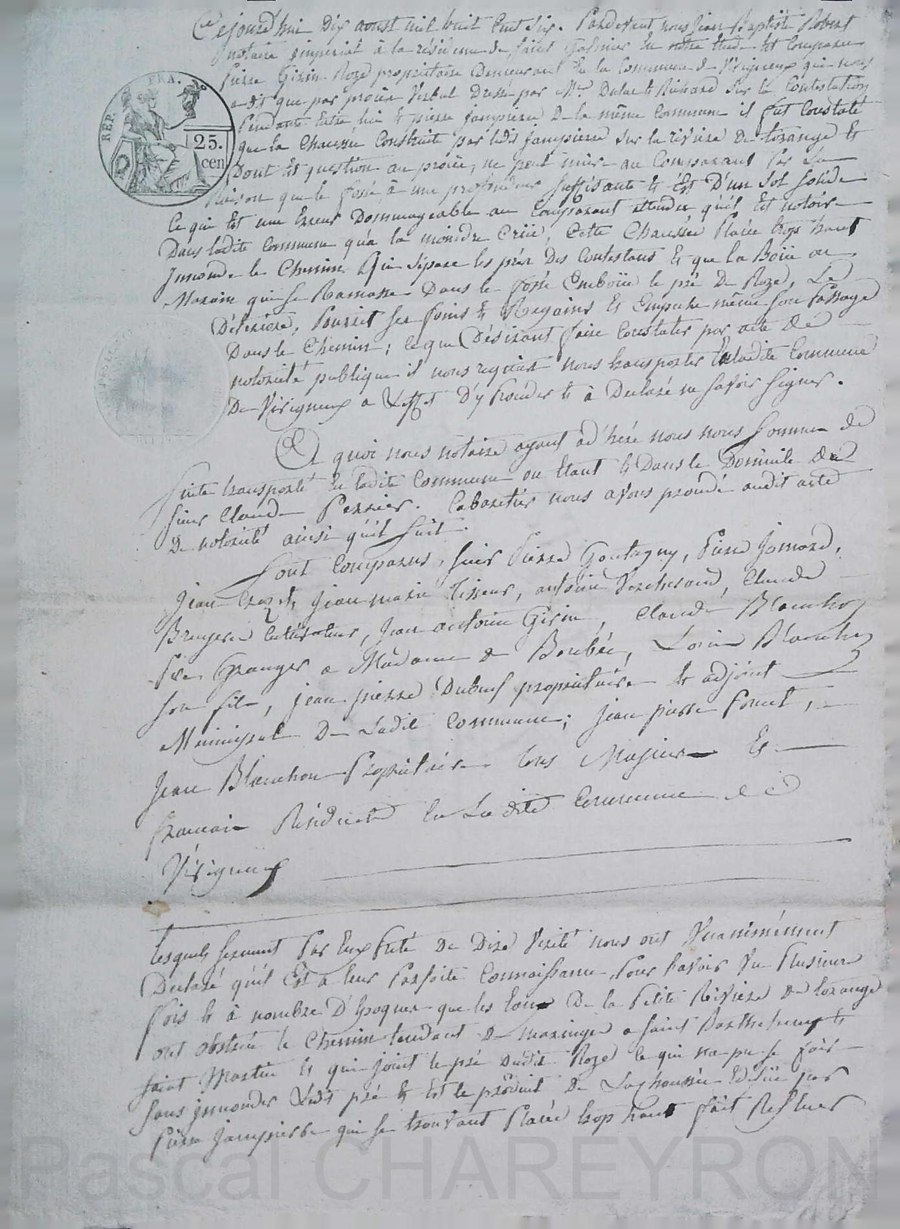 Cejourd'hui dix aoust mil huit cent six. Pardevant nous jean Baptiste Robert
notaire imperial à la residence de saint Galmier en notre étude Est Comparu
pierre Girin Roze propriétaire Demeurant En la Commune de Virigneux qui nous
a dit que par procès Verbal Dressé par Mrs sur la Contestation
Pendante Entre lui & pierre jampierre De la même Commune il fut Constaté
que la Chaussée Construite par ledit jampierre sur la riviere De Lozange &
Dont Est question au procès, ne peut nuire au Comparant Par la
Raison que le fossé à une profondeur suffisante & Est D'un sol solide
Ce qui Est une Erreur Dommageable au Comparant attendu qu'il Est notoire
Dans ladite Commune qu'a la moindre Crüe, Cette Chaussée Placée trop haut
Innonde le Chemin Qui sépare les prés des Contestans Et que la Boüe ou
qui se Ramasse Dans le fossé Emboüe le pré De Roze, Le
Déteriore, Pourrit ses foins & Regains Et Empeche même son Passage
Dans le Chemin; Ce que Désirant faire Constater par acte De
notoriété publique il nous requiert nous transporter En ladite Commune
De Virigneux a L'effet D'y Procéder & à Déclaré ne savoir signer.
A quoi nous notaire ayant adhéré nous nous sommes De
suite transporté En ladite Commune ou Etant & Dans le Domicile De
sieur Claude Perrier. Cabaretier nous avons procédé audit acte
De notoriété ainsi qu'il suit
Sont Comparus, sieurs Pierre Goutagny, Pierre Jomard,
Jean , jean marie Tisseur, antoine , Claude
Bruyere Cultivateurs, Jean antoine Girin, Claude Blanchon
Granger a Madame de , Blanchon
son fils, jean pierre Dubeuf propriétaire & adjoint
Municipal De Ladite Commune; jean pierre ,
Jean Blanchon Propriétaire tous Majeurs Et
francais Résidant En Ladite Commune de
Virigneux
lesquels serment Par Eux Prêté De Dire Vérité nous ont Unanimément
Déclaré qu'il Est à leur Parfaite Connaissance, Pour l'avoir Vu Plusieurs
fois & à nombre D'Epoques que les Eaux De la Petite Riviere De Lozange
ont obstrué le Chemin tendant De maringe a saint Barthelemy &
saint Martin Et qui joint le pré Dudit Roze Ce qui na pu se faire
sans innonder Ledit pré & Est le produit De La Chaussée Edifiée par
Pierre Jampierre qui se trouvant Placée trop haut fait Refluer
REP. FRA.
25.
cen
Pascal CHAREYRON